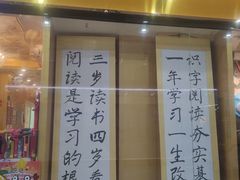 识字阅读夯实基
一年学习一生改
三岁读书四岁看
阅读是学习的根